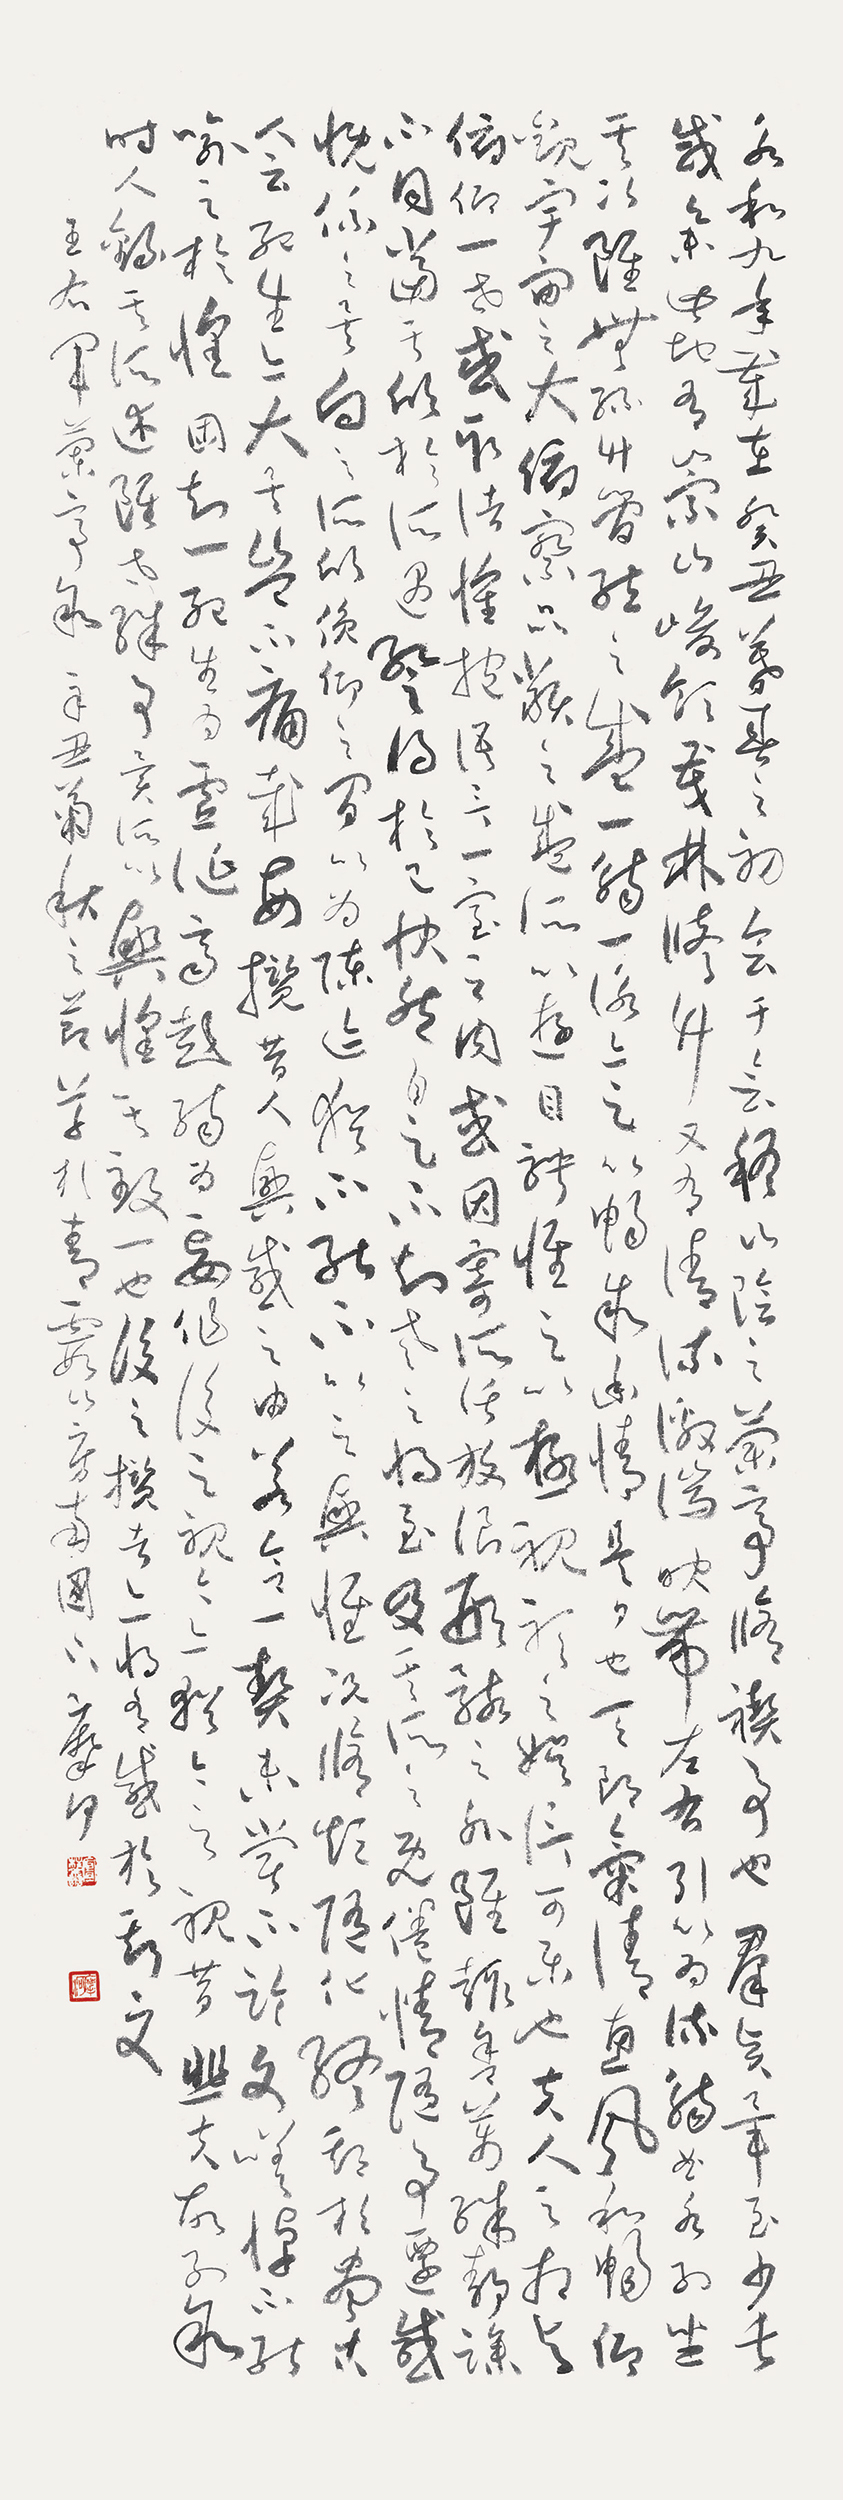 永和九年歲在癸丑暮春之初會于會稽山陰之蘭亭脩禊事也羣賢畢至少長
咸集此地有崇山峻領茂林脩竹又有清流激湍映帶左右引以為流觴曲水列坐
其次雖無絲竹管弦之盛一觴一詠亦足以暢敘幽情是日也天朗氣清惠風和暢仰
觀宇宙之大俯察品類之盛所以遊目騁懷足以極視聽之娛信可樂也夫人之相與
俯仰一世或取諸懷抱悟言一室之內或因寄所託放浪形骸之外雖趣舍萬殊靜躁
不同當其欣於所遇蹔得於己快然自足不知老之將至及其所之既倦情隨事遷感
慨係之矣向之所欣俛仰之間以為陳迹猶不能不以之興懷況脩短隨化終期於盡古
人云死生亦大矣豈不痛哉每攬昔人興感之由若合一契未嘗不臨文嗟悼不能
喻之於懷固知一死生為虛誕齊彭殤為妄作後之視今亦猶今之視昔悲夫故列敘
時人錄其所述雖世殊事異所以興懷其致一也後之攬者亦將有感於斯文
王右軍蘭亭敘 辛丑菊秋之節草於青霞山房南國